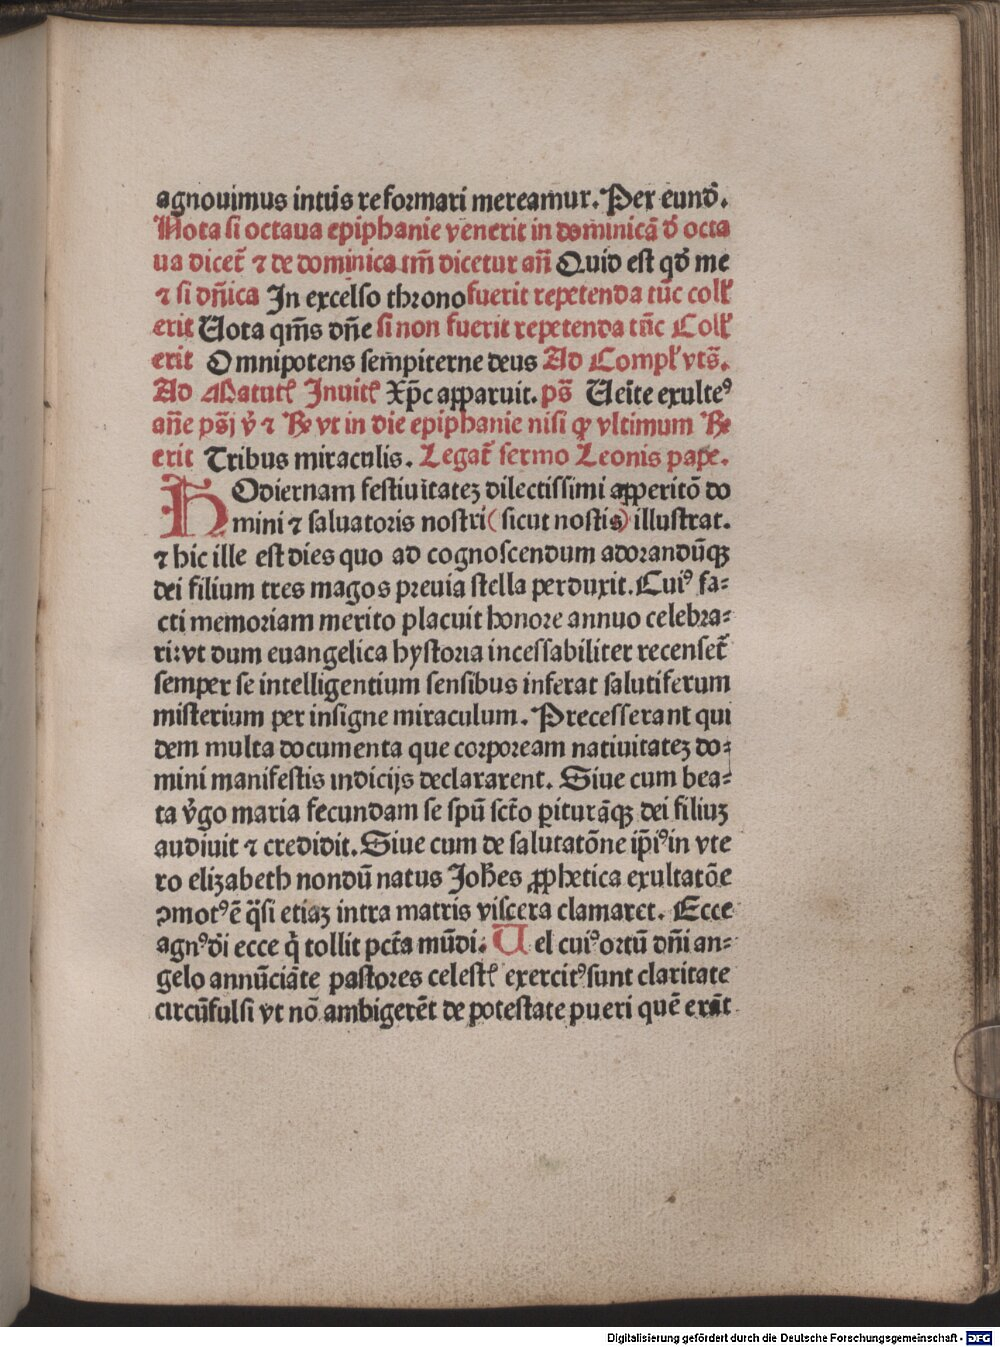 agnouimus intus reformari mereamur. Per eund̄.
Nota si octaua epiphanie venerit in dominicā đ octa
ua dicet̄ ⁊ de dominica tm̄ dicetur an̄ Quid est qđ me
⁊ si dn̄ica In excelso throno fuerit repetenda tūc coll̄
erit Uota qm̄s dn̄e si non fuerit repetenda tūc Coll̄
erit Omnipotens sempiterne deus Ad Compl̄ vts̄.
Ad Matutꝭ Inuitꝭ Xp̄c apparuit. ps̄ Ueīte exulteꝰ
an̄e ps̄ j v̄ ⁊ ℟ vt in die epiphanie nisi ꝙ vltimum ℟
erit Tribus miraculis. Legat̄ sermo Leonis pape.
HOdiernam festiuitatez dilectissimi apperitō do
mini ⁊ saluatoris nostri (sicut nostis) illustrat.
⁊ hic ille est dies quo ad cognoscendum adorandūqꝫ
dei filium tres magos preuia stella perduxit. Cuiꝰ fa⸗
cti memoriam merito placuit honore annuo celebra⸗
ri: vt dum euangelica hystoria incessabiliter recenset̄
semper se intelligentium sensibus inferat salutiferum
misterium per insigne miraculum. Precesserant qui
dem multa documenta que corpoream natiuitatez do⸗
mini manifestis indicijs declararent. Siue cum bea⸗
ta v̄go maria fecundam se spū scto̅ piturāqꝫ dei filiuꝫ
audiuit ⁊ credidit. Siue cum de salutatōne ip̄iꝰ in vte
ro elizabeth nondū natus Joh̄es ꝓphetica exultatōe
ꝯmotꝰ ē q̄si etiaꝫ intra matris viscera clamaret. Ecce
agnꝰ d̄i ecce q̄ tollit pctā mūdi. Uel cuiꝰ ortū dn̄i an⸗
gelo annūciāte pastores celestꝭ exercitꝰ sunt claritate
circūfulsi vt nō ambigerēt de potestate pueri quē erāt
Digitalisierung gefördert durch die Deutsche Forschungsgemeinschaft - DFG